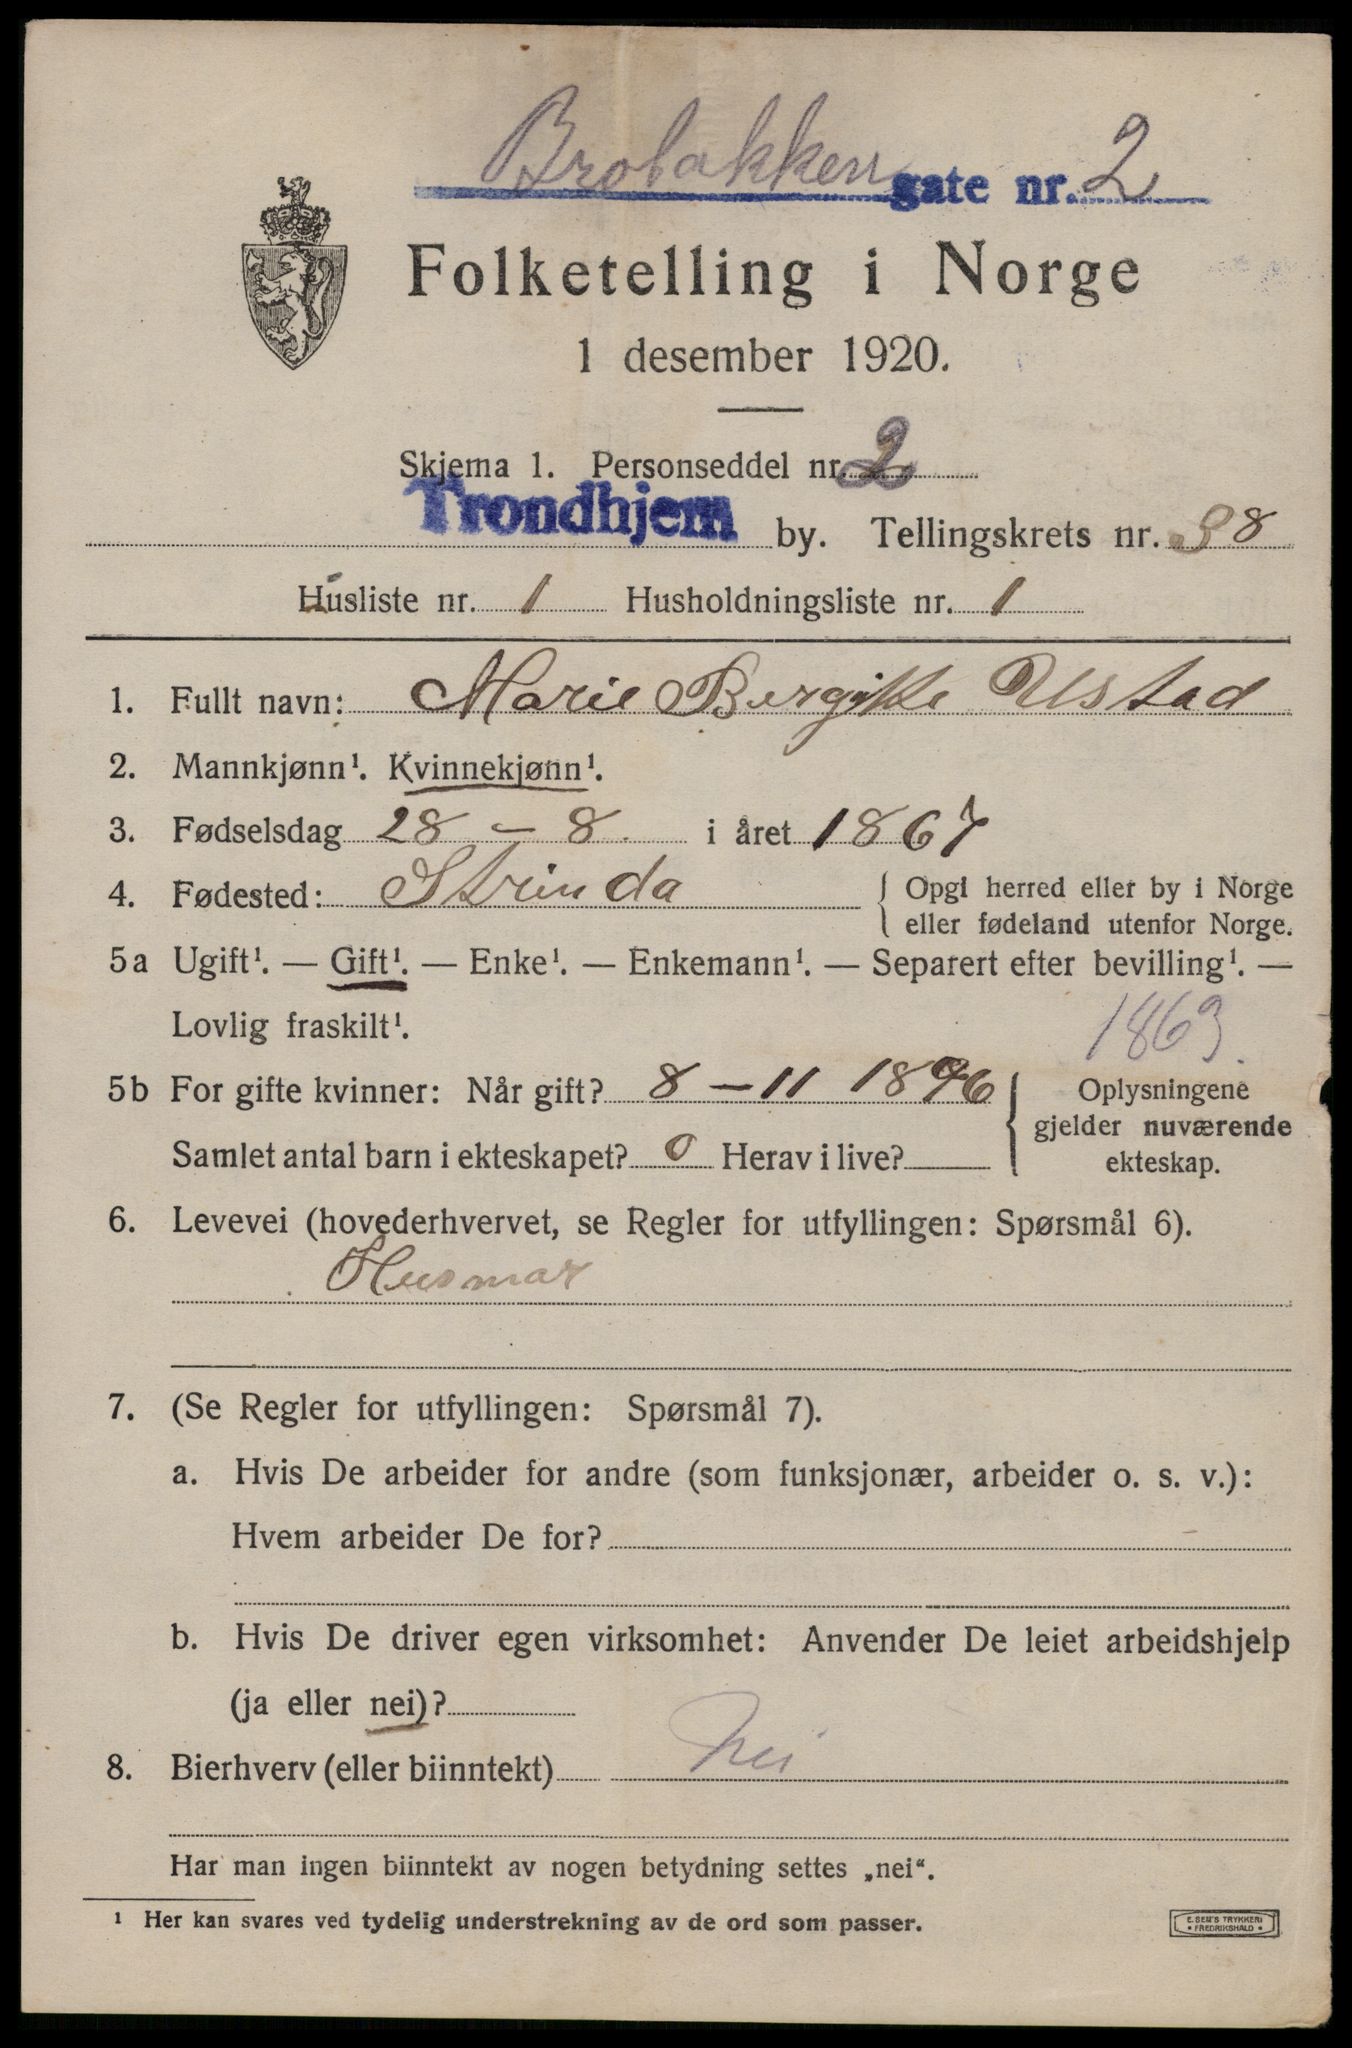 Brobakken gate nr. 2
Folketelling i Norge
1 desember 1920.
Skjema 1. Personseddel nr. 2
Trondhjem by. Tellingskrets nr. 38
Husliste nr. 1 Husholdningsliste nr. 1
1. Fullt navn: Marie Bergitte Ustad
2. Mannkjønn¹. Kvinnekjønn¹.
3. Fødselsdag 28 – 8 i året 1867
4. Fødested: Strinda { Opgi herred eller by i Norge
eller fødeland utenfor Norge.
5a Ugift¹. — Gift¹. — Enke¹. — Enkemann¹. — Separert efter bevilling¹. —
Lovlig fraskilt¹.
1863.
5b For gifte kvinner: Når gift? 8 – 11 1896 } Oplysningene
gjelder nuværende
Samlet antal barn i ekteskapet? 0 Herav i live?
ekteskap.
6. Levevei (hovederhvervet, se Regler for utfyllingen: Spørsmål 6).
Husmor
7. (Se Regler for utfyllingen: Spørsmål 7).
a. Hvis De arbeider for andre (som funksjonær, arbeider o. s. v.):
Hvem arbeider De for?
b. Hvis De driver egen virksomhet: Anvender De leiet arbeidshjelp
(ja eller nei)?
8. Bierhverv (eller biinntekt) Nei
Har man ingen biinntekt av nogen betydning settes „nei“.
¹ Her kan svares ved tydelig understrekning av de ord som passer.
E. SEM'S TRYKKERI
• FREDRIKSHALD •